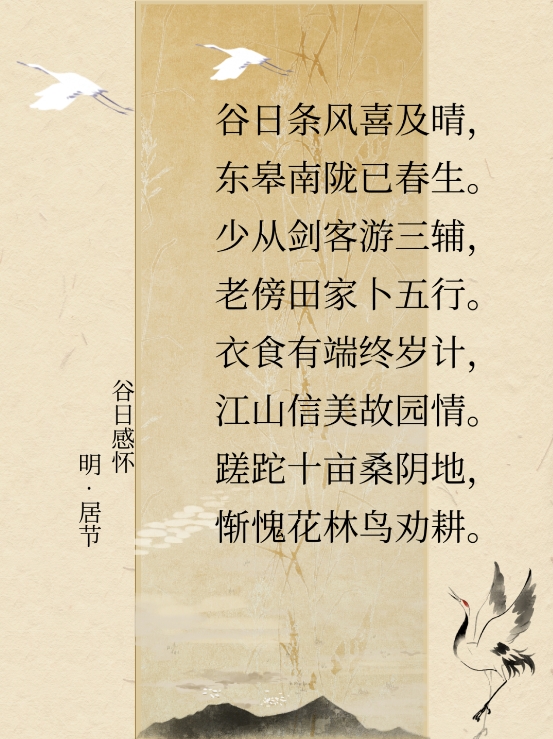 谷日条风喜及晴，
东皋南陇已春生。
少从剑客游三辅，
老傍田家卜五行。
衣食有端终岁计，
江山信美故园情。
蹉跎十亩桑阴地，
惭愧花林鸟劝耕。
谷日感怀
明·居节